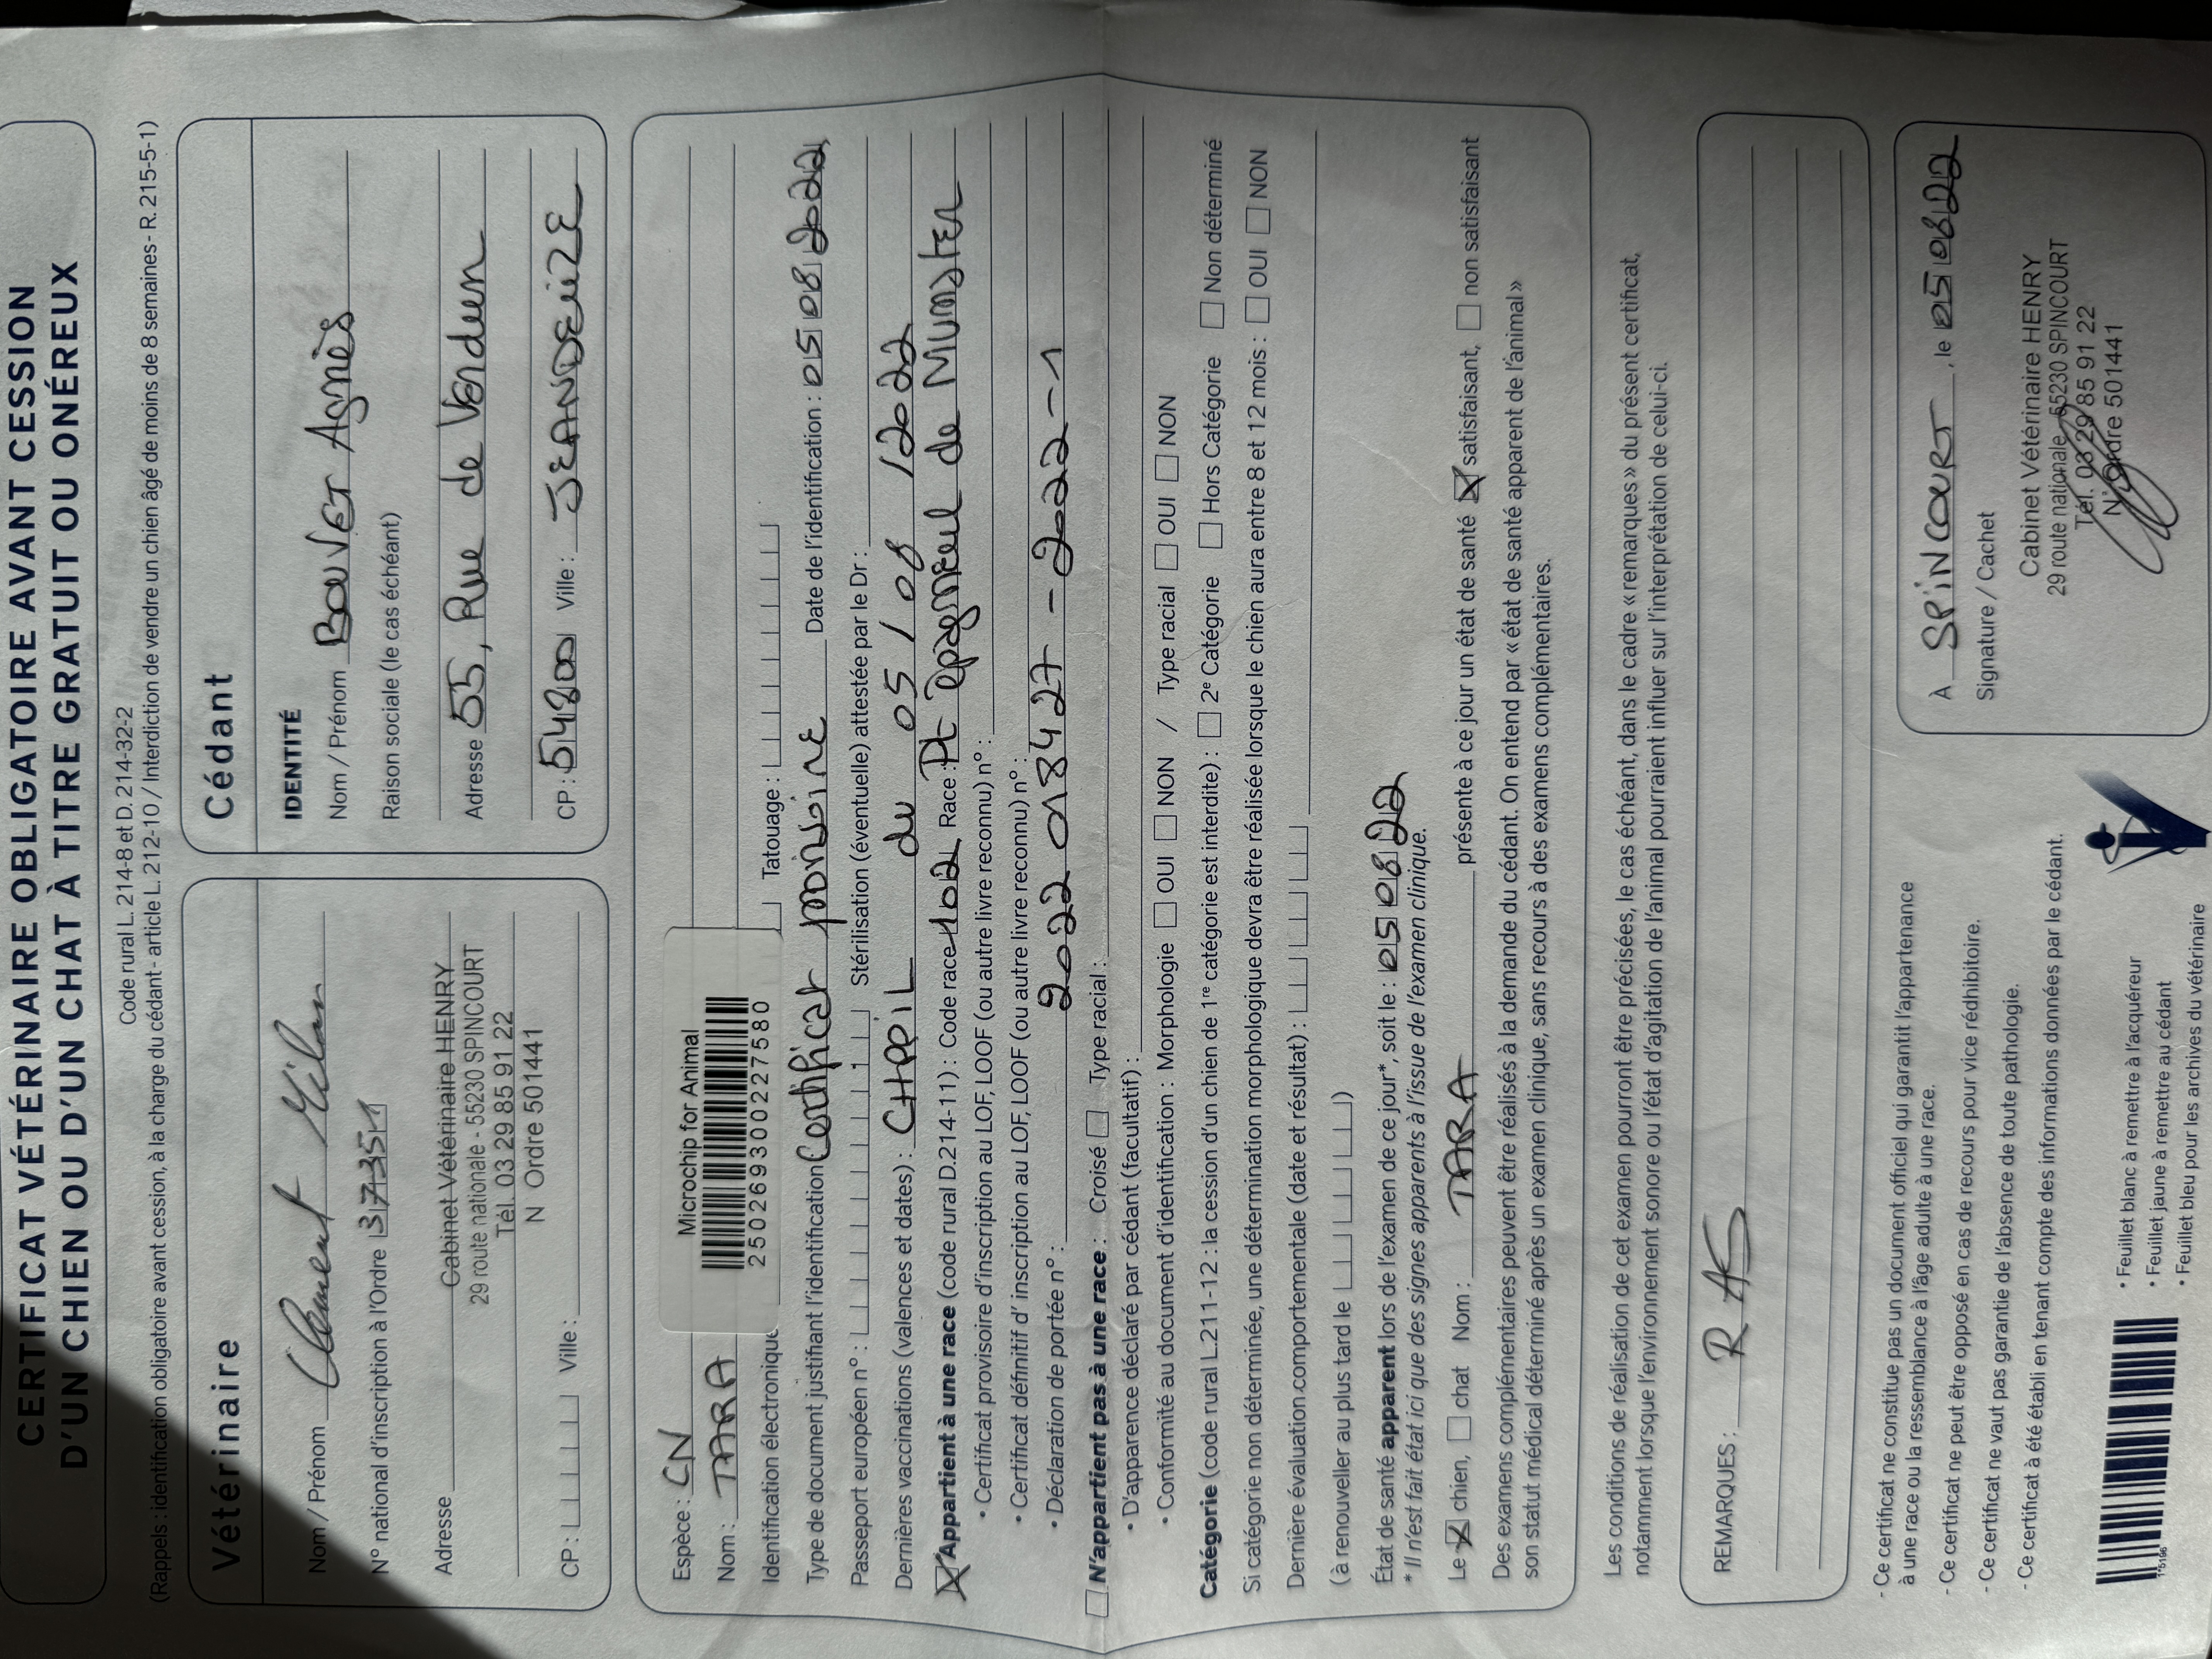 CERTIFICAT VÉTÉRINAIRE OBLIGATOIRE AVANT CESSION
D'UN CHIEN OU D'UN CHAT À TITRE GRATUIT OU ONÉREUX
Code rural L. 214-8 et D. 214-32-2
(Rappels : identification obligatoire avant cession, à la charge du cédant - article L. 212-10 / Interdiction de vendre un chien âgé de moins de 8 semaines - R. 215-5-1)
Vétérinaire
Nom / Prénom Clément Milan
N° national d'inscription à l'Ordre 37351
Adresse Cabinet Vétérinaire HENRY
29 route nationale - 55230 SPINCOURT
Tél. 03 29 85 91 22
N Ordre 501441
CP : Ville :
Cédant
IDENTITÉ
Nom / Prénom BOUVET Agnès
Raison sociale (le cas échéant)
Adresse 55, Rue de Verdun
CP : 54800 Ville : JEANDELIZE
Espèce : CN
Microchip for Animal
Nom : TARA
250269300227580
Identification électronique Tatouage :
Type de document justifiant l'identification Certificat provisoire Date de l'identification : 05 08 2022
Passeport européen n° : Stérilisation (éventuelle) attestée par le Dr :
Dernières vaccinations (valences et dates) : CHPPiL du 05/08/2022
Appartient à une race (code rural D.214-11) : Code race 102 Race : Pt épagneul de Munster
• Certificat provisoire d'inscription au LOF, LOOF (ou autre livre reconnu) n° :
• Certificat définitif d'inscription au LOF, LOOF (ou autre livre reconnu) n° :
• Déclaration de portée n° : 2022 018427-2022-1
N'appartient pas à une race : Croisé Type racial :
• D'apparence déclaré par cédant (facultatif) :
• Conformité au document d'identification : Morphologie OUI NON / Type racial OUI NON
Catégorie (code rural L.211-12 : la cession d'un chien de 1re catégorie est interdite) : 2e Catégorie Hors Catégorie Non déterminé
Si catégorie non déterminée, une détermination morphologique devra être réalisée lorsque le chien aura entre 8 et 12 mois : OUI NON
Dernière évaluation comportementale (date et résultat) :
(à renouveller au plus tard le )
État de santé apparent lors de l'examen de ce jour*, soit le : 05 08 22
* Il n'est fait état ici que des signes apparents à l'issue de l'examen clinique.
Le chien, chat Nom : TARA présente à ce jour un état de santé satisfaisant, non satisfaisant
Des examens complémentaires peuvent être réalisés à la demande du cédant. On entend par « état de santé apparent de l'animal »
son statut médical déterminé après un examen clinique, sans recours à des examens complémentaires.
Les conditions de réalisation de cet examen pourront être précisées, le cas échéant, dans le cadre « remarques » du présent certificat,
notamment lorsque l'environnement sonore ou l'état d'agitation de l'animal pourraient influer sur l'interprétation de celui-ci.
REMARQUES : RAS
- Ce certificat ne constitue pas un document officiel qui garantit l'appartenance
à une race ou la ressemblance à l'âge adulte à une race.
- Ce certificat ne peut être opposé en cas de recours pour vice rédhibitoire.
- Ce certificat ne vaut pas garantie de l'absence de toute pathologie.
- Ce certificat a été établi en tenant compte des informations données par le cédant.
À SPINCOURT, le 05 08 22
Signature / Cachet
Cabinet Vétérinaire HENRY
29 route nationale 55230 SPINCOURT
Tél. 03 29 85 91 22
N° Ordre 501441
• Feuillet blanc à remettre à l'acquéreur
• Feuillet jaune à remettre au cédant
• Feuillet bleu pour les archives du vétérinaire